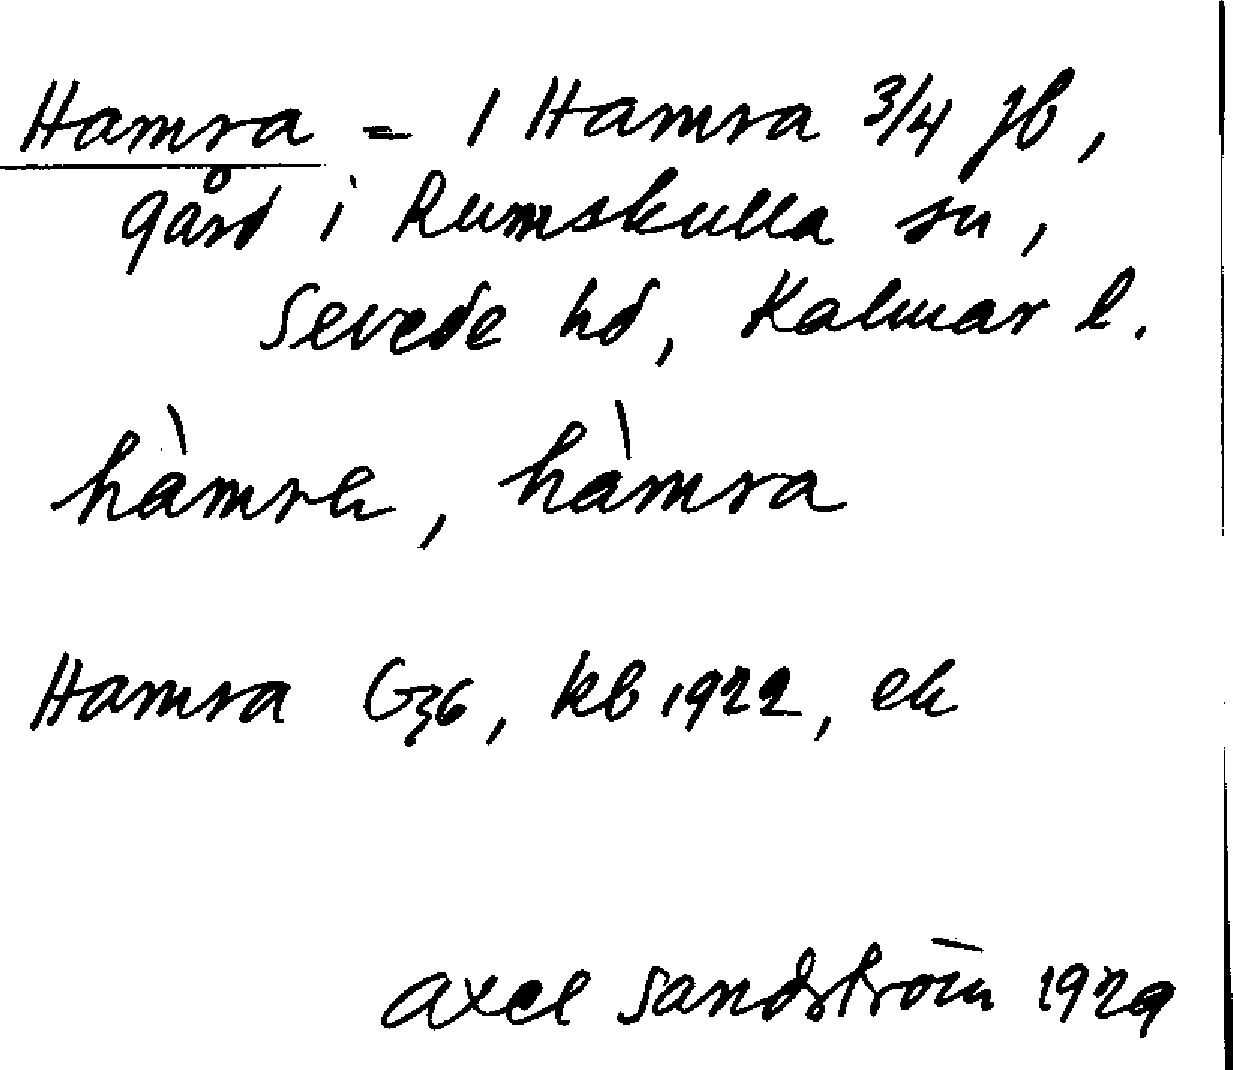 Hamra - 1 Hamra 3/4 jb,
gård i Rumskulla sn,
Sevede hd, Kalmar l.
hàmra, hàmra
Hamra G36, kb 1922, ek
Axel Sandström 1929